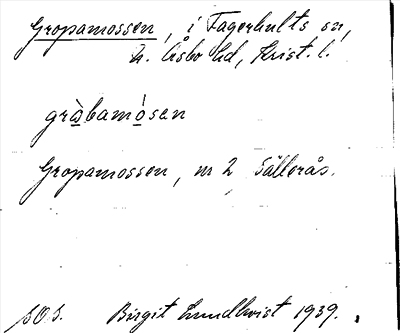 Gropamossen, i Fagerhults sn,
N. Åsbo hd, Krist. l.
gràbamòsen
Gropamossen, nr 2 Sällerås.
SOS. Birgit Lundkvist 1939.